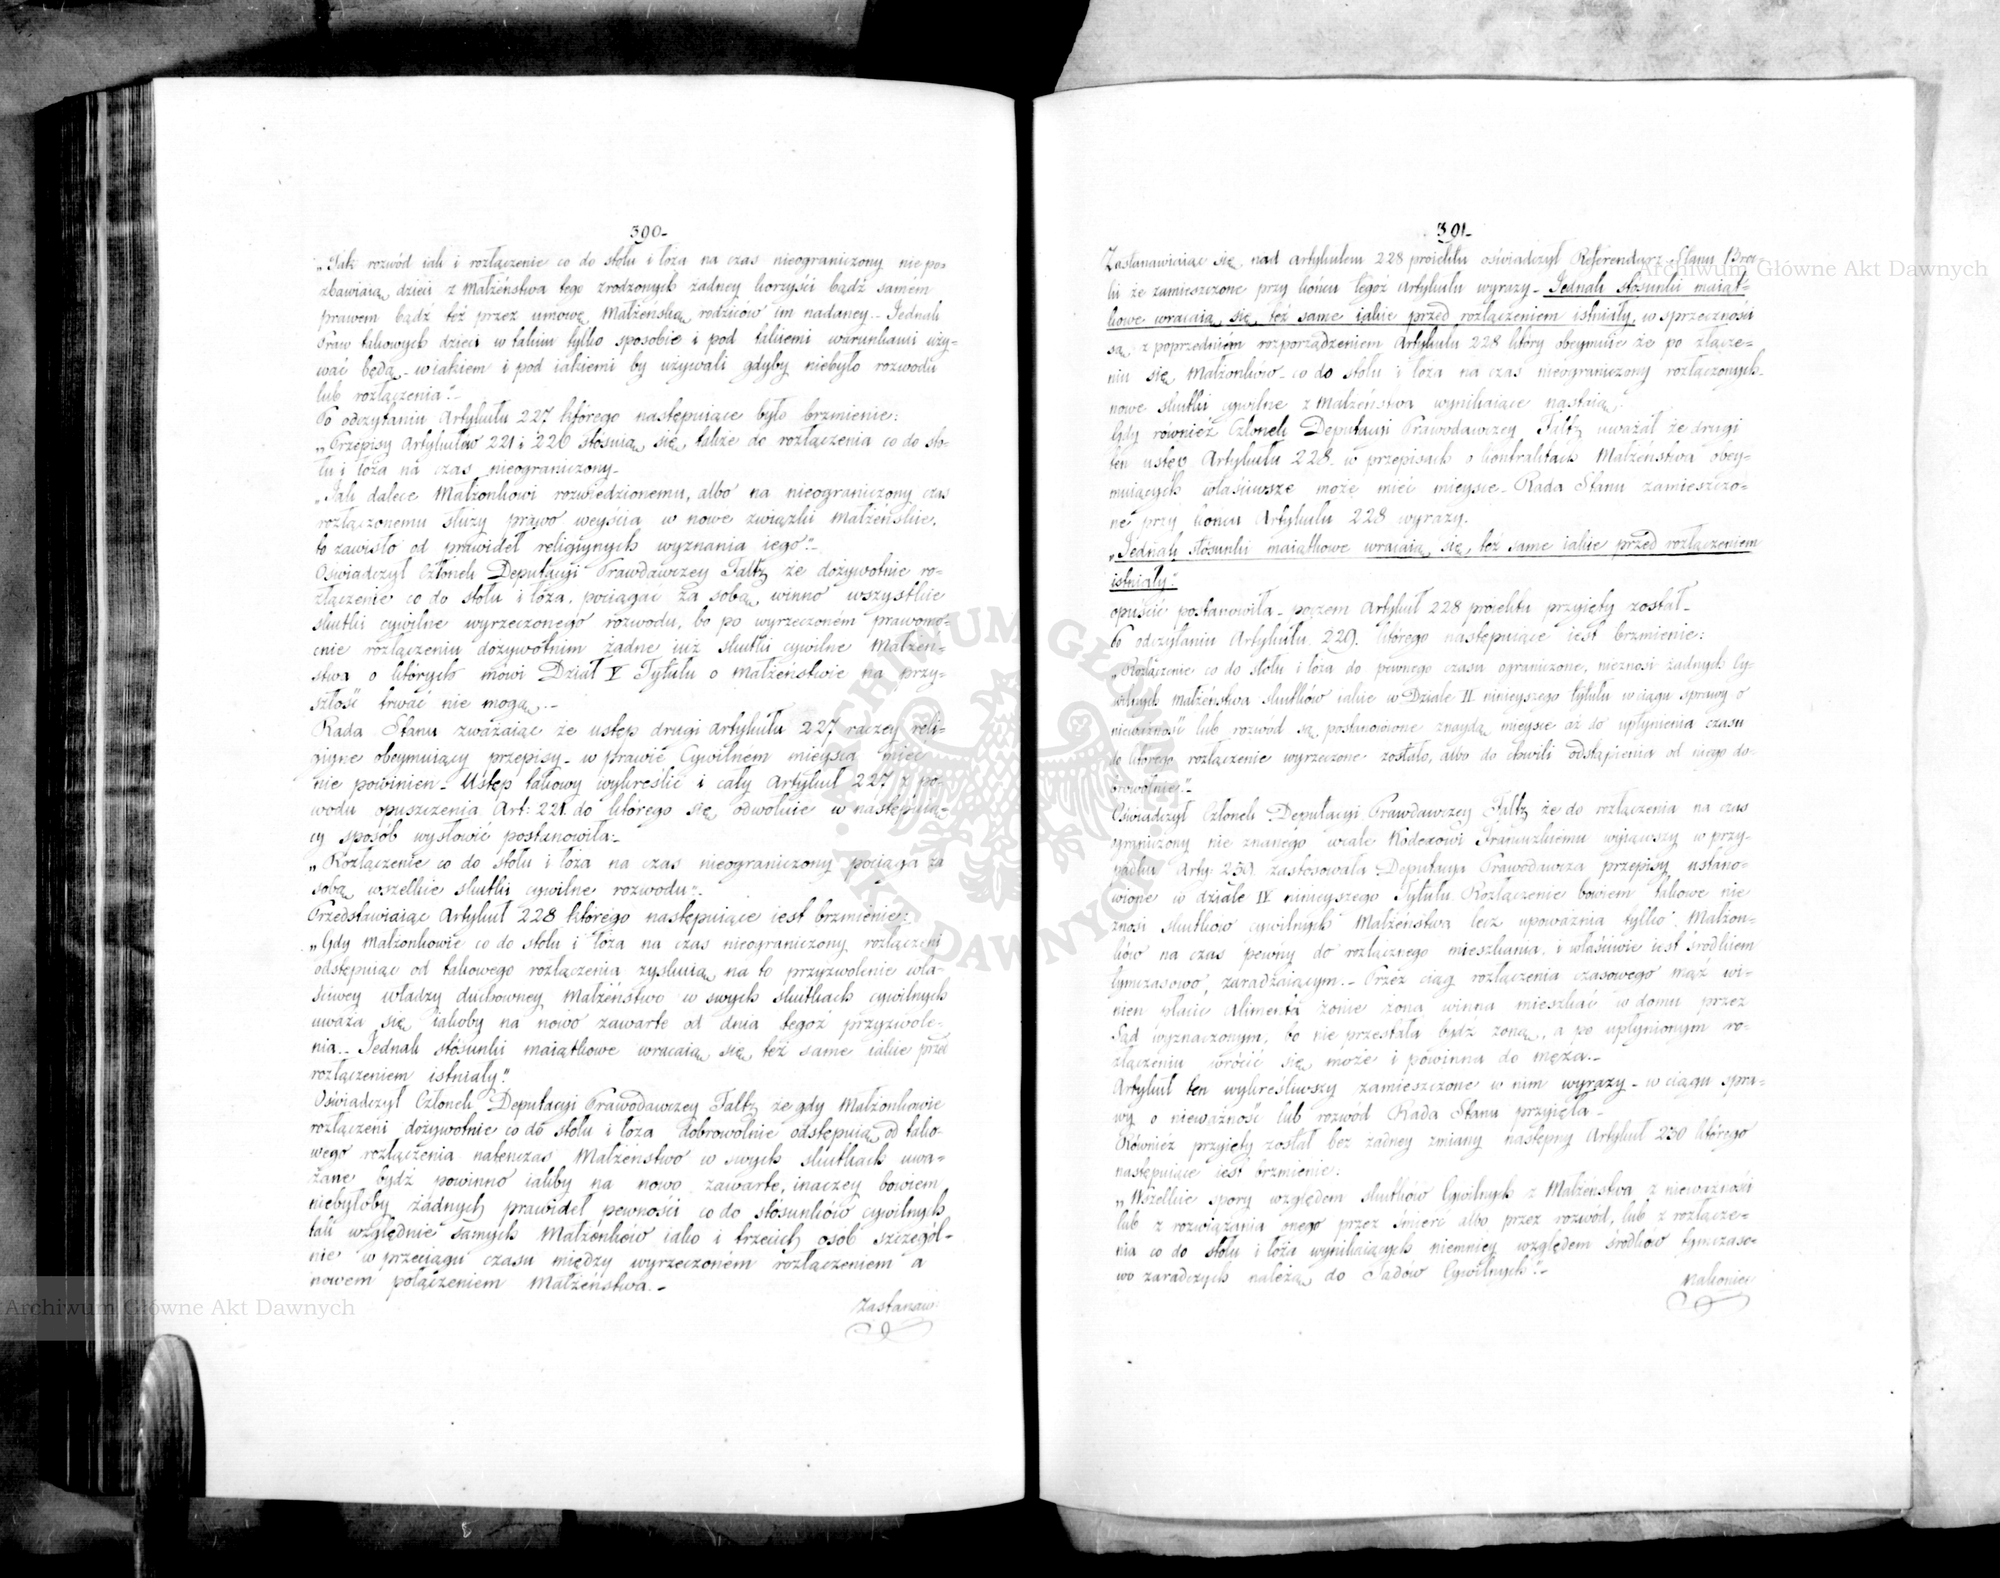 390-
„Jak rozwód iak i rozłączenie co do stołu i łoża na czas nieograniczony nie po-
zbawiaią dzieci z Małżeństwa tego zrodzonych żadney korzyści bądź samem
prawem bądź też przez umowę Małżeńską rodziców im nadaney.- Jednak
Praw takowych dzieci w takim tylko sposobie i pod takiemi warunkami uży-
wać będą - w iakiem i pod iakiemi by używali gdyby niebyło rozwodu
lub rozłączenia".-
Po odczytaniu Artykułu 227 którego następuiące było brzmienie:
„Przepisy Artykułów 221 i 226 stosuią się także do rozłączenia co do sto-
łu i łoża na czas nieograniczony-
„Jak dalece Małżonkowi rozwiedzionemu, albo na nieograniczony czas
rozłączonemu służy prawo weyścia w nowe związki Małżeńskie,
to zawisło od prawideł religiynych wyznania iego".-
Oświadczył Członek Deputacyi Prawdawczey Faltz że dożywotnie ro-
złączenie co do stołu i łoża, pociągać za sobą winno wszystkie
skutki cywilne wyrzeczonego rozwodu, bo po wyrzeczoném prawomo-
cnie rozłączeniu dożywotnim żadne iuż skutki cywilne Małżeń-
stwa o których mówi Dział V Tytułu o Małżeństwie na przy-
szłość trwać nie mogą.-
Rada Stanu zważaiąc że ustęp drugi Artykułu 227 raczey reli-
giyne obeymuiący przepisy - w Prawie Cywilném mieysca mieć
nie powinien - Ustęp takowy wykreślić i cały Artykuł 227 z po-
wodu opuszczenia Art: 221 do którego się odwołuie w następuią-
cy sposób wysłowić postanowiła:-
„Rozłączenie co do stołu i łoża na czas nieograniczony pociąga za
sobą wszelkie skutki cywilne rozwodu".-
Przedstawiaiąc Artykuł 228 którego następuiące iest brzmienie:
„Gdy Małżonkowie co do stołu i łoża na czas nieograniczony rozłączeni
odstępuiąc od takowego rozłączenia zyskuią na to przyzwolenie wła-
ściwey władzy duchowney Małżeństwo w swych skutkach cywilnych
uważa się iakoby na nowo zawarte od dnia tegoż przyzwole-
nia.- Jednak stósunki maiątkowe wracaią się też same iakie przed
rozłączeniem istniały".
Oświadczył Członek Deputacyi Prawodawczey Faltz że gdy Małżonkowie
rozłączeni dożywotnie co do stołu i łoża dobrowolnie odstępuią od tako-
wego rozłączenia natenczas Małżeństwo w swych skutkach uwa-
żane bydź powinno iakby na nowo zawarte, inaczey bowiem
niebyłoby żadnych prawideł pewności co do stosunków cywilnych
tak względnie samych Małżonków iako i trzecich osób szczegól-
nie w przeciągu czasu między wyrzeczoném rozłączeniem a
nowem połączeniem Małżeństwa.-
Zastanaw:
391-
Zastanawiaiąc się nad Artykułem 228 proiektu oświadczył Referendarz Stanu Broc-
ki że zamieszczone przy końcu tegoż Artykułu wyrazy - Jednak stósunki maiąt-
kowe wracaią się też same iakie przed rozłączeniem istniały, w sprzeczności
są z poprzedniém rozporządzeniem Artykułu 228 który obeymuie że po złącze-
niu się Małżonków - co do stołu i łoża na czas nieograniczony rozłączonych -
nowe skutki cywilne z Małżeństwa wynikaiące nastaią.
Gdy również Członek Deputacyi Prawodawczey Faltz uważał że drugi
ten ustęp Artykułu 228 - w przepisach o kontraktach Małżeństwa obey-
muiących właściwsze może mieć mieysce - Rada Stanu zamieszczo-
ne przy końcu Artykułu 228 wyrazy.
„Jednak stósunki maiątkowe wracaią się też same iakie przed rozłączeniem
istniały".
opuścić postanowiła - poczem Artykuł 228 proiektu przyięty został -
Po odczytaniu Artykułu 229. którego następuiące iest brzmienie:
„Rozłączenie co do stołu i łoża do pewnego czasu ograniczone, nieznosi żadnych Cy-
wilnych Małżeństwa skutków iakie w Dziale II ninieyszego tytułu w ciągu sprawy o
nieważność lub rozwód są postanowione znaydą mieysce aż do upłynienia czasu
do którego rozłączenie wyrzeczone zostało, albo do chwili odstąpienia od niego do-
browolnie".-
Oświadczył Członek Deputacyi Prawdawczey Faltz że do rozłączenia na czas
ograniczony nie znanego wcale Kodexowi Francuzkiemu wyiąwszy w przy-
padku Arty: 259. zastosowała Deputacya Prawodawcza przepisy ustano-
wione w dziale IV ninieyszego Tytułu. Rozłączenie bowiem takowe nie
znosi skutków cywilnych Małżeństwa lecz upoważnia tylko Małżon-
ków na czas pewny do rozłącznego mieszkania i właściwie iest środkiem
tymczasowo, zaradzaiącym.- Przez ciąg rozłączenia czasowego mąż wi-
nien płacić Alimenta żonie żona winna mieszkać w domu przez
Sąd wyznaczonym, bo nie przestała bydź żoną, a po upłynionym ro-
złączeniu wrócić się może i powinna do męża.-
Artykuł ten wykreśliwszy zamieszczone w nim wyrazy - w ciągu spra-
wy o nieważność lub rozwód Rada Stanu przyięła -
Również przyięty został bez żadney zmiany następny Artykuł 230 którego
następuiące iest brzmienie:
„Wszelkie spory względem skutków Cywilnych z Małżeństwa z nieważności
lub z rozwiązania onego przez śmierć albo przez rozwód, lub z rozłącze-
nia co do stołu i łoża wynikaiących niemniey względem środków tymczaso-
wo zaradczych należą do Sądów Cywilnych".-
Nakoniec
Archiwum Główne Akt Dawnych
Archiwum Główne Akt Dawnych
ARCHIWUM GŁÓWNE AKT DAWNYCH